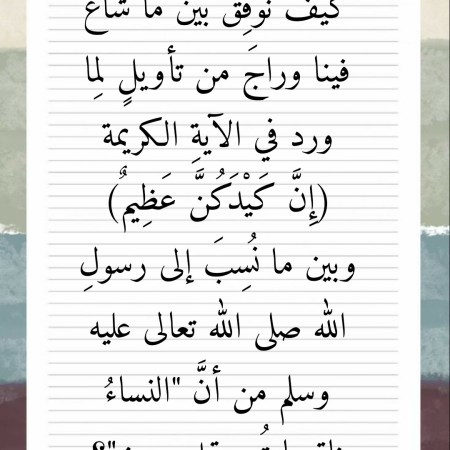 كيف نُوفِّق بين ما شاع
فينا وراجَ من تأويلٍ لِما
ورد في الآيةِ الكريمة
(إِنَّ كَيْدَكُنَّ عَظِيمٌ)
وبين ما نُسِبَ إلى رسولِ
الله صلى الله تعالى عليه
وسلم من أنَّ "النساءُ